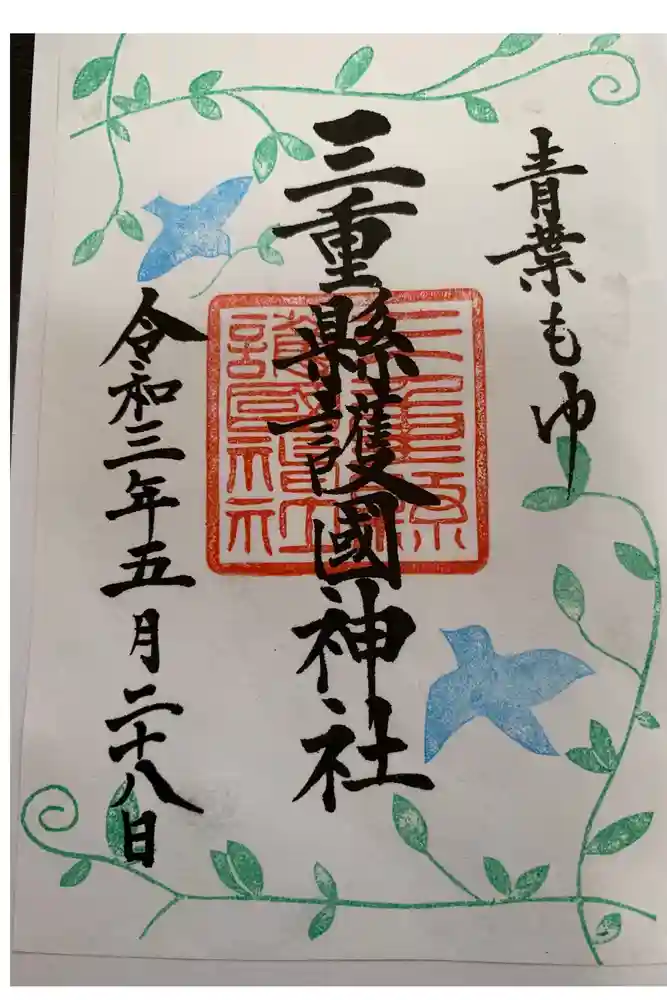 青葉もゆ
三重縣護國神社
三重縣
護國神社
令和三年五月二十八日